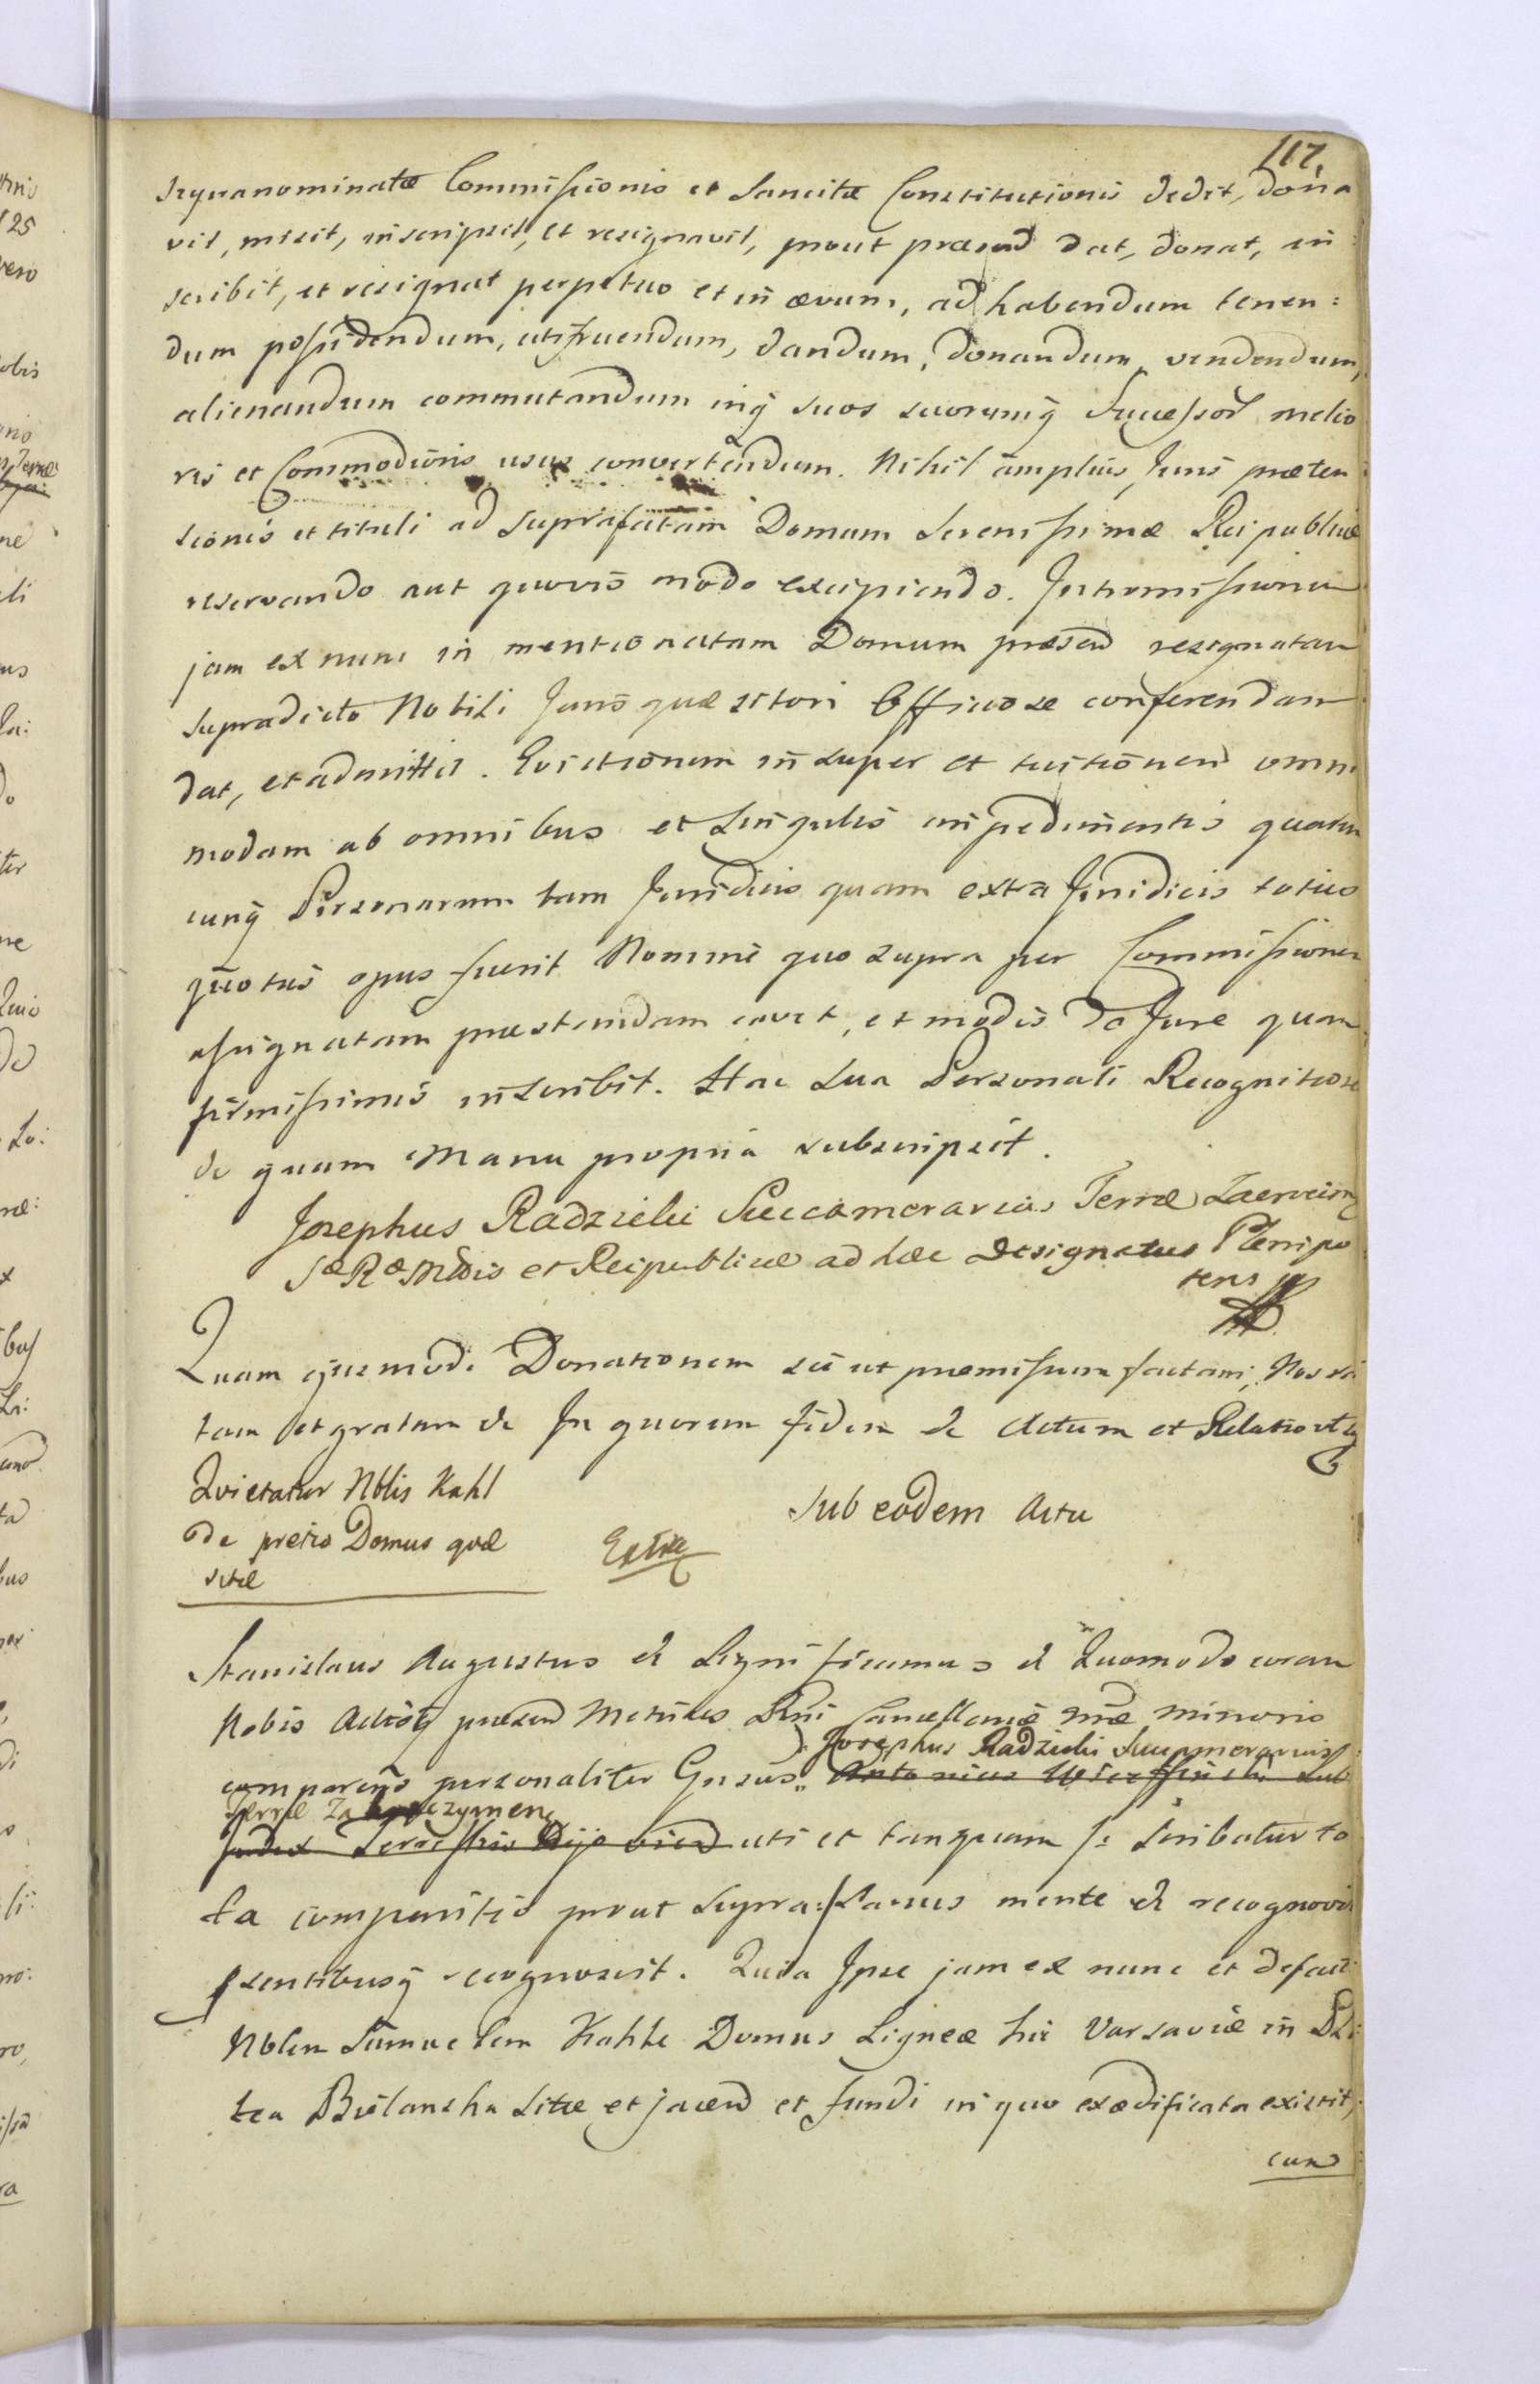 117.
supranominatæ Commissionis et Sancitæ Constitutionis dedit, dona
vit, inscripsit, et resignavit, prout præsend dat, donat, in:
scribit, et resignat perpetuo et in ævum, ad habendum tenen:
dum possidendum, utifruendum, dandum, donandum, vendendum,
alienandum commutandum inq suos suorumq Successor melio
ris et Commodioris usus convertendum. Nihil amplius Juris præten
sionis et tituli ad suprafatam Domum Serenissimæ Reipublicæ
reservando aut quovis modo excipiendo. Intromissionem
jam ex nunc in mentionatam Domum præsend resignatam
supradicto Nobili Juris quæsitori Officiose conferendam
dat, et admittit. Evictionem insuper et tuitionem omni
modam ab omnibus et singulis impedimentis quarum
cunq Personarum tam Juridicis quam extra Juridicis toties
quoties opus fuerit Nomine quo supra per Commissionem
assignatam præstandam cavet, et modis de Jure quam
firmissimis inscribit. Hac sua Personali Recognitione
de quam Manu propria subscripsit.
Josephus Radzicki Succamerarius Terræ Zacrocim
SæRæMttis et Reipublicæ ad hæc designatus Plenipo
tens
Quam ejusmodi Donationem sic ut præmissum factam, Nos ra
tam et gratam &c In quorum fidem &c Actum et Relatio
Quietatur Nblis Kahl
de pretio Domus quæ
sitæ
Extra
Sub eodem Actu
Stanislaus Augustus &c Significamus &c Quomodo coram
Nobis Actisq præsend Metrices Rni Cancellariæ Nræ Minoris
Josephus Radzicki Succamerarius
comparens personaliter Gnrsus Antonius Sub
Terræ Zakroczymen
Judex Terrestris uti et tanquam /: scribatur to
ta comparitio prout supra :/ Sanus mente &c recognovit
pzentibusq recognoscit. Quia Ipse jam ex nunc et defacto
Nblem Samuelem Kahle Domus Ligneæ hic Varsaviæ in Pla
tea Bielanska sitæ et jacend et fundi in quo exædificata existit,
cum